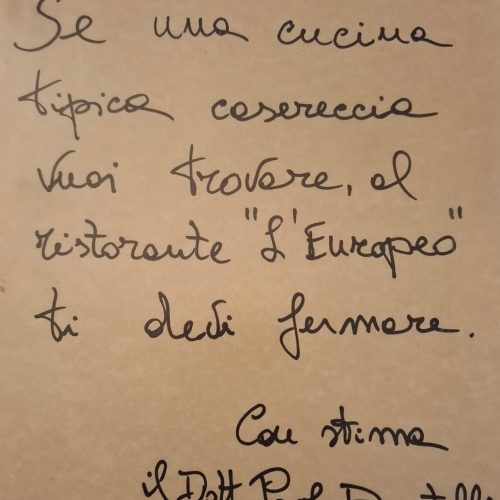 Se una cucina
tipica casereccia
vuoi trovare, al
ristorante "L'Europeo"
ti devi fermare.
Con stima
il Dott